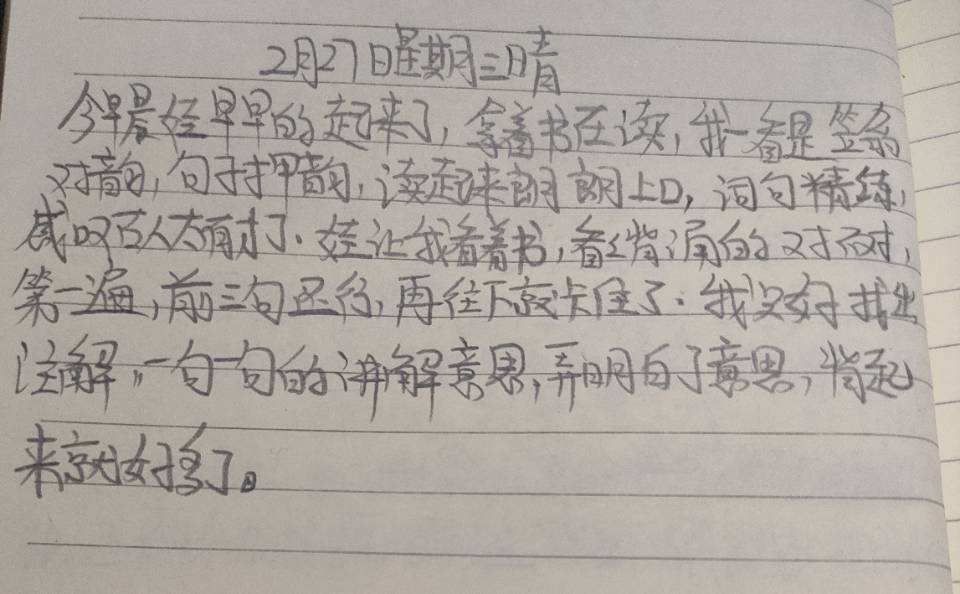 2月27日星期三晴
今早晨娃早早的起来了，拿着书在读，我一看是笠翁
对韵，句子押韵，读起来朗朗上口，词句精练，
感叹古人太有才了．娃让我看着书，看他背诵的对不对，
第一遍，前三句还行，再往下就卡住了．我只好找出
注解，一句一句的讲解意思，弄明白了意思，背起
来就好多了。